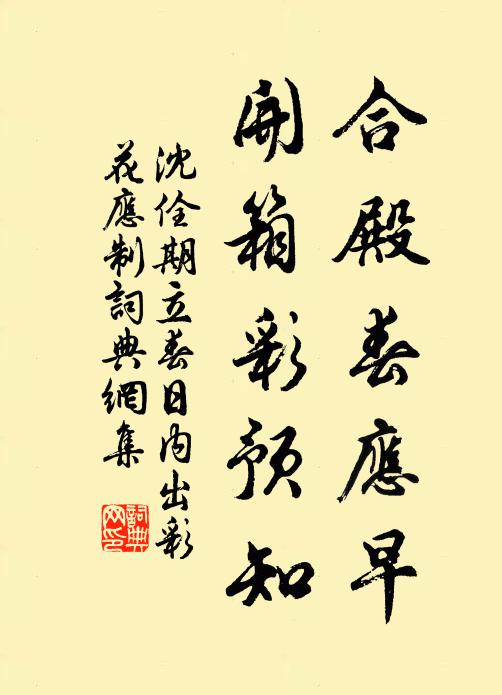 合殿春應早
開箱彩預知
沈佺期立春日內出彩
花應制詞典網集
詞典網印